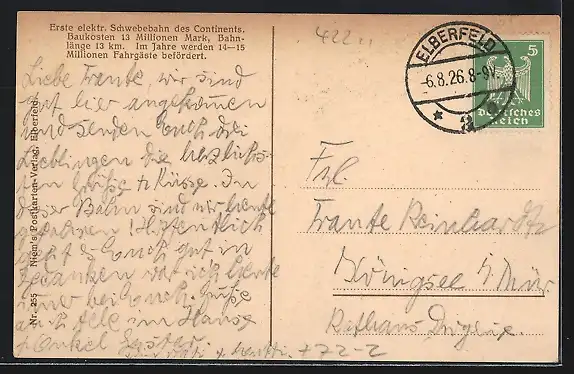 Erste elektr. Schwebebahn des Continents.
Baukosten 13 Millionen Mark, Bahn-
länge 13 km. Im Jahre werden 14—15
Millionen Fahrgäste befördert.
Liebe Trante, wir sind
gut hier angekommen
und senden Euch drei
Lieblingen die herzlichs-
ten Grüße & Küsse. In
dieser Bahn sind wir heute
gefahren. Hoffentlich
geht es Euch gut in
Gedanken war ich heute
immer bei Euch. Grüße
im Hause
& Onkel
Nr. 255 Niem's Postkarten-Verlag, Elberfeld.
422
ELBERFELD
-6.8.26.8-9V.
* 3
5
Deutsches
Reich
Frl
Trante Reinhardt
Königsee i/Thür
Rathaus Drogerie.
+ 72-2